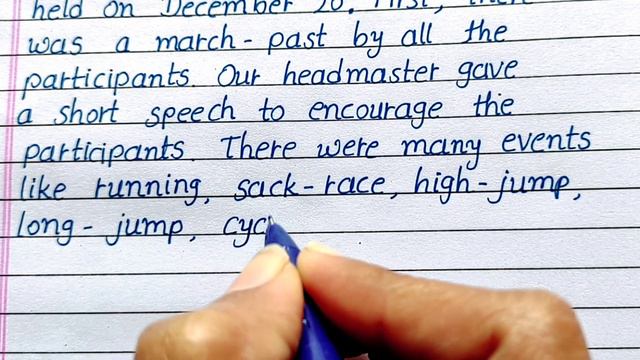 held on December 20. First, there
was a march-past by all the
participants. Our headmaster gave
a short speech to encourage the
participants. There were many events
like running, sack-race, high-jump,
long-jump, cyc